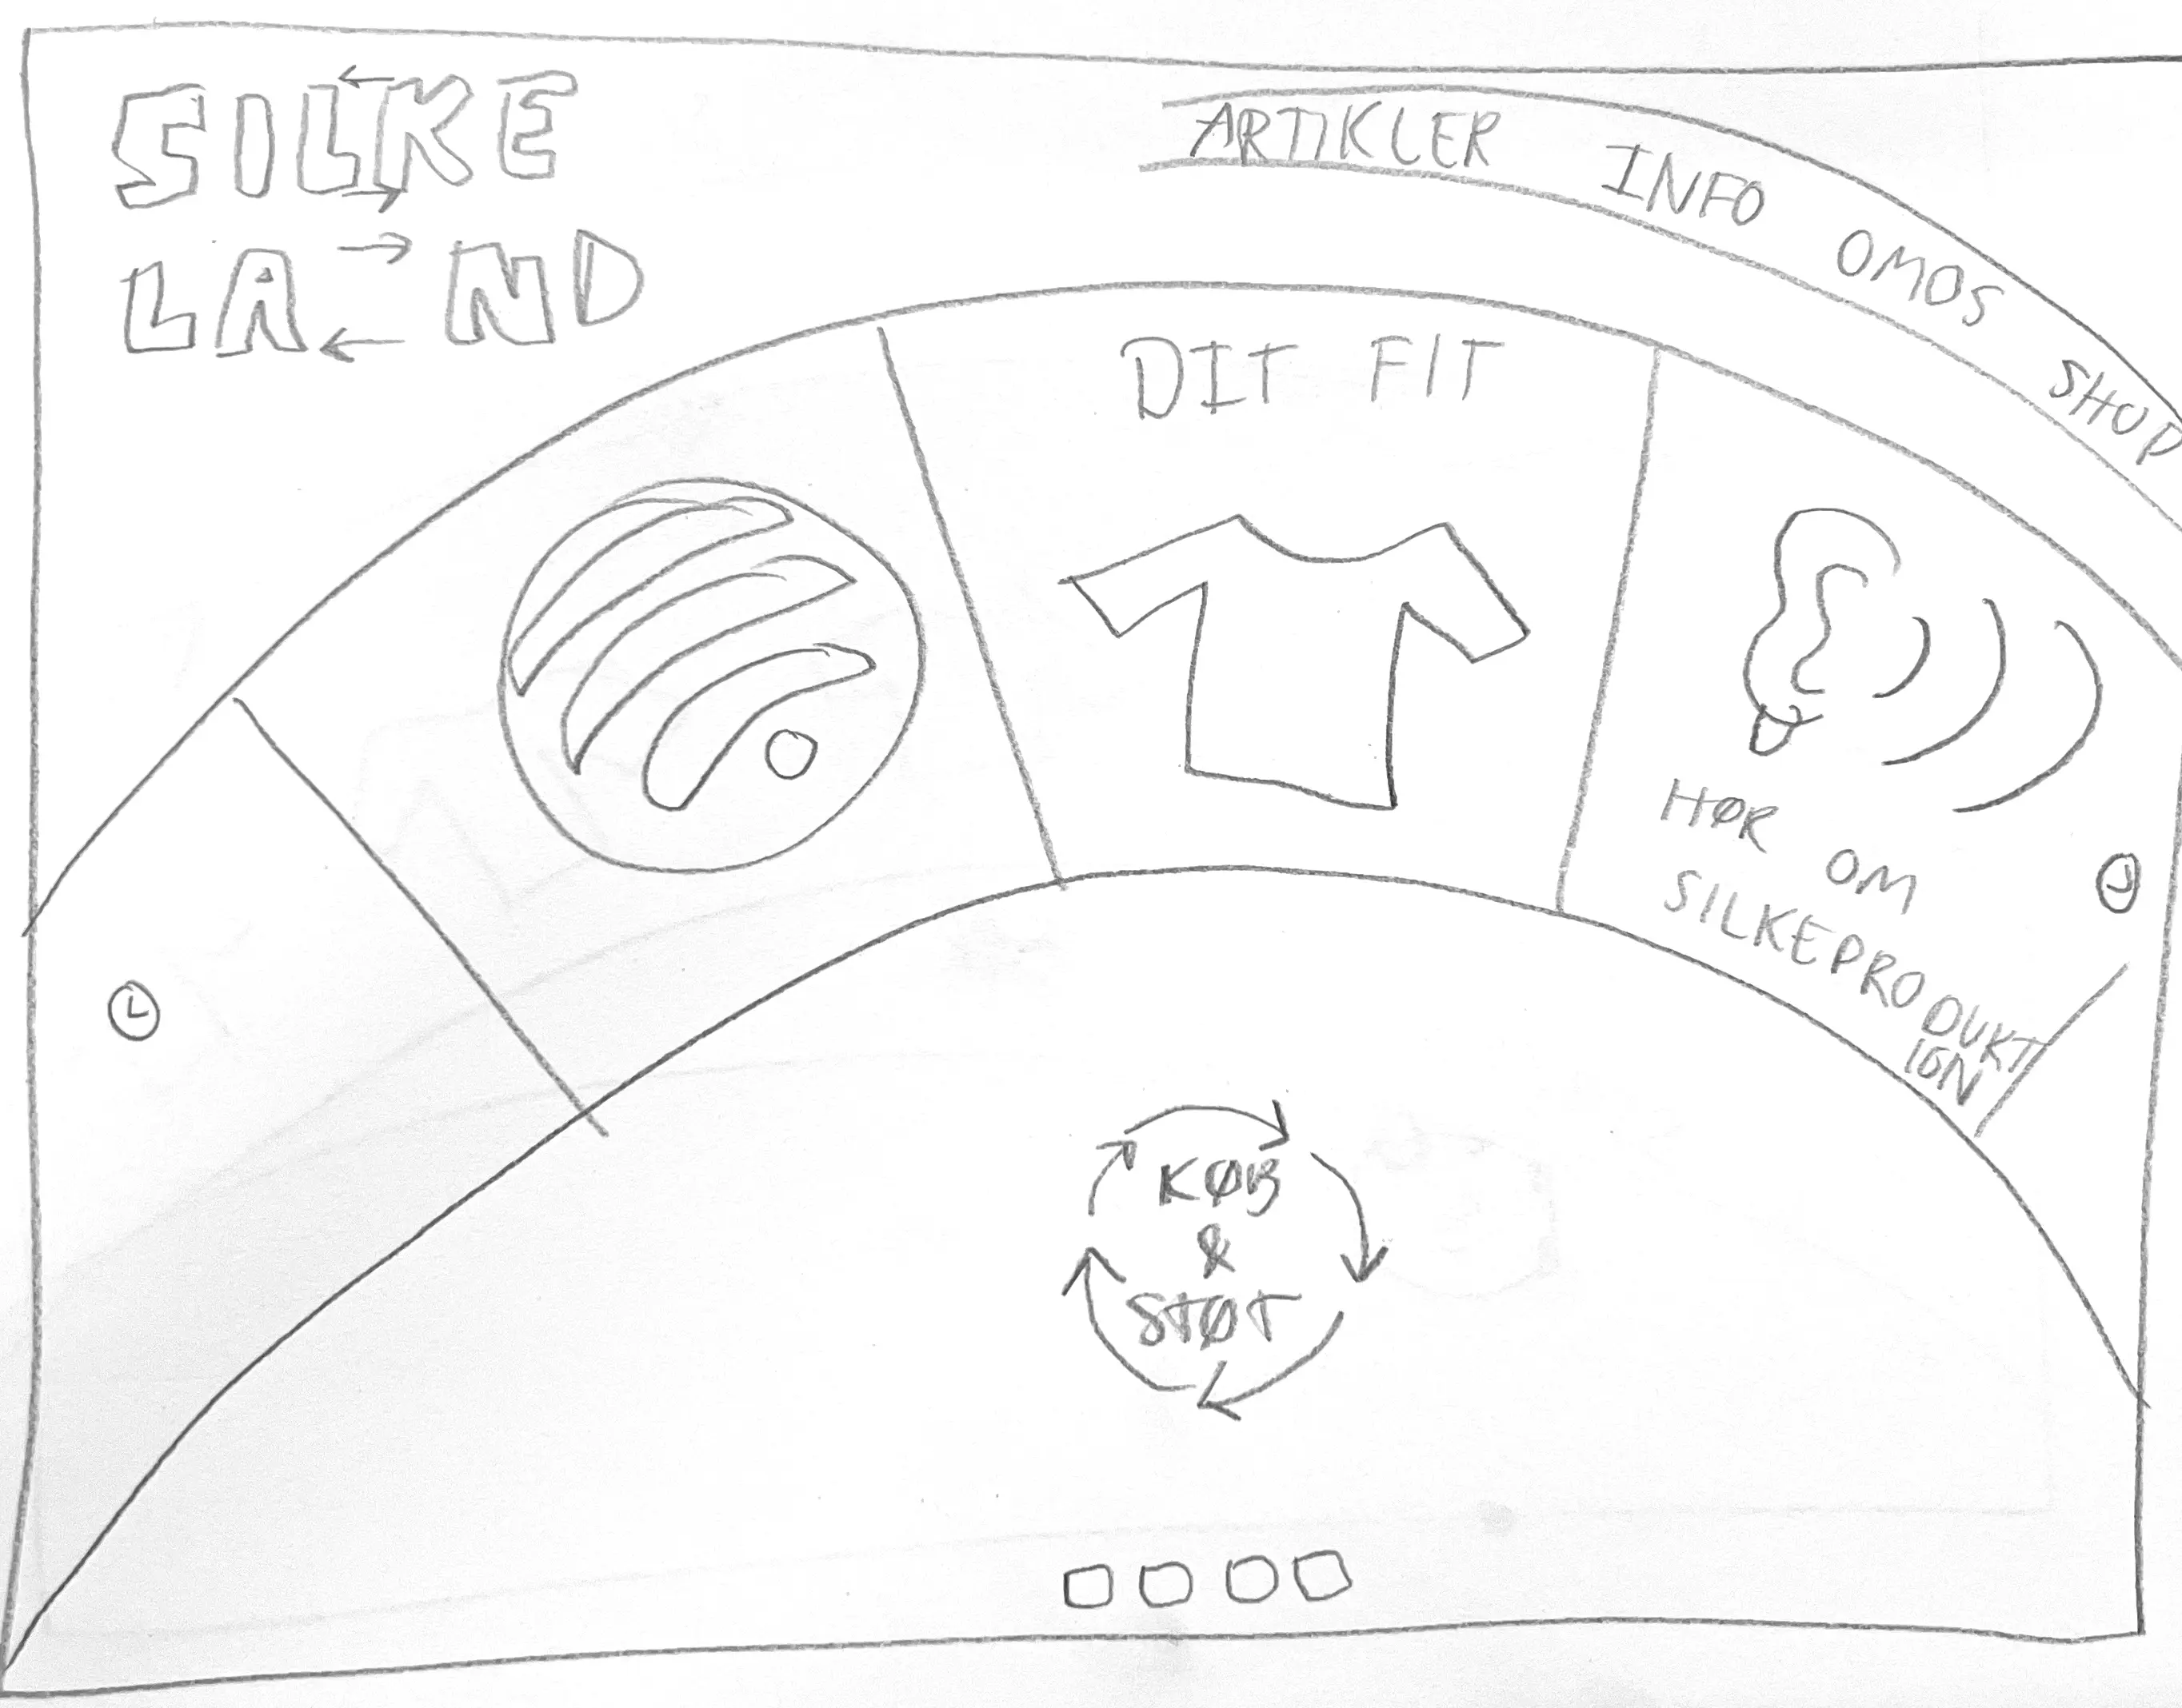 SILKE
LAND
ARTIKLER INFO OM OS SHOP
DIT FIT
HØR OM
SILKEPRODUKT
ION
KØB
&
STØT